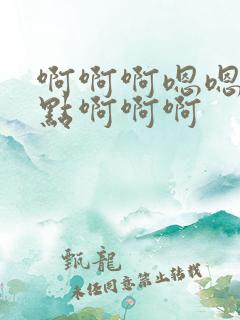 啊啊啊嗯嗯
點啊啊啊
甄龍
未经同意禁止转载